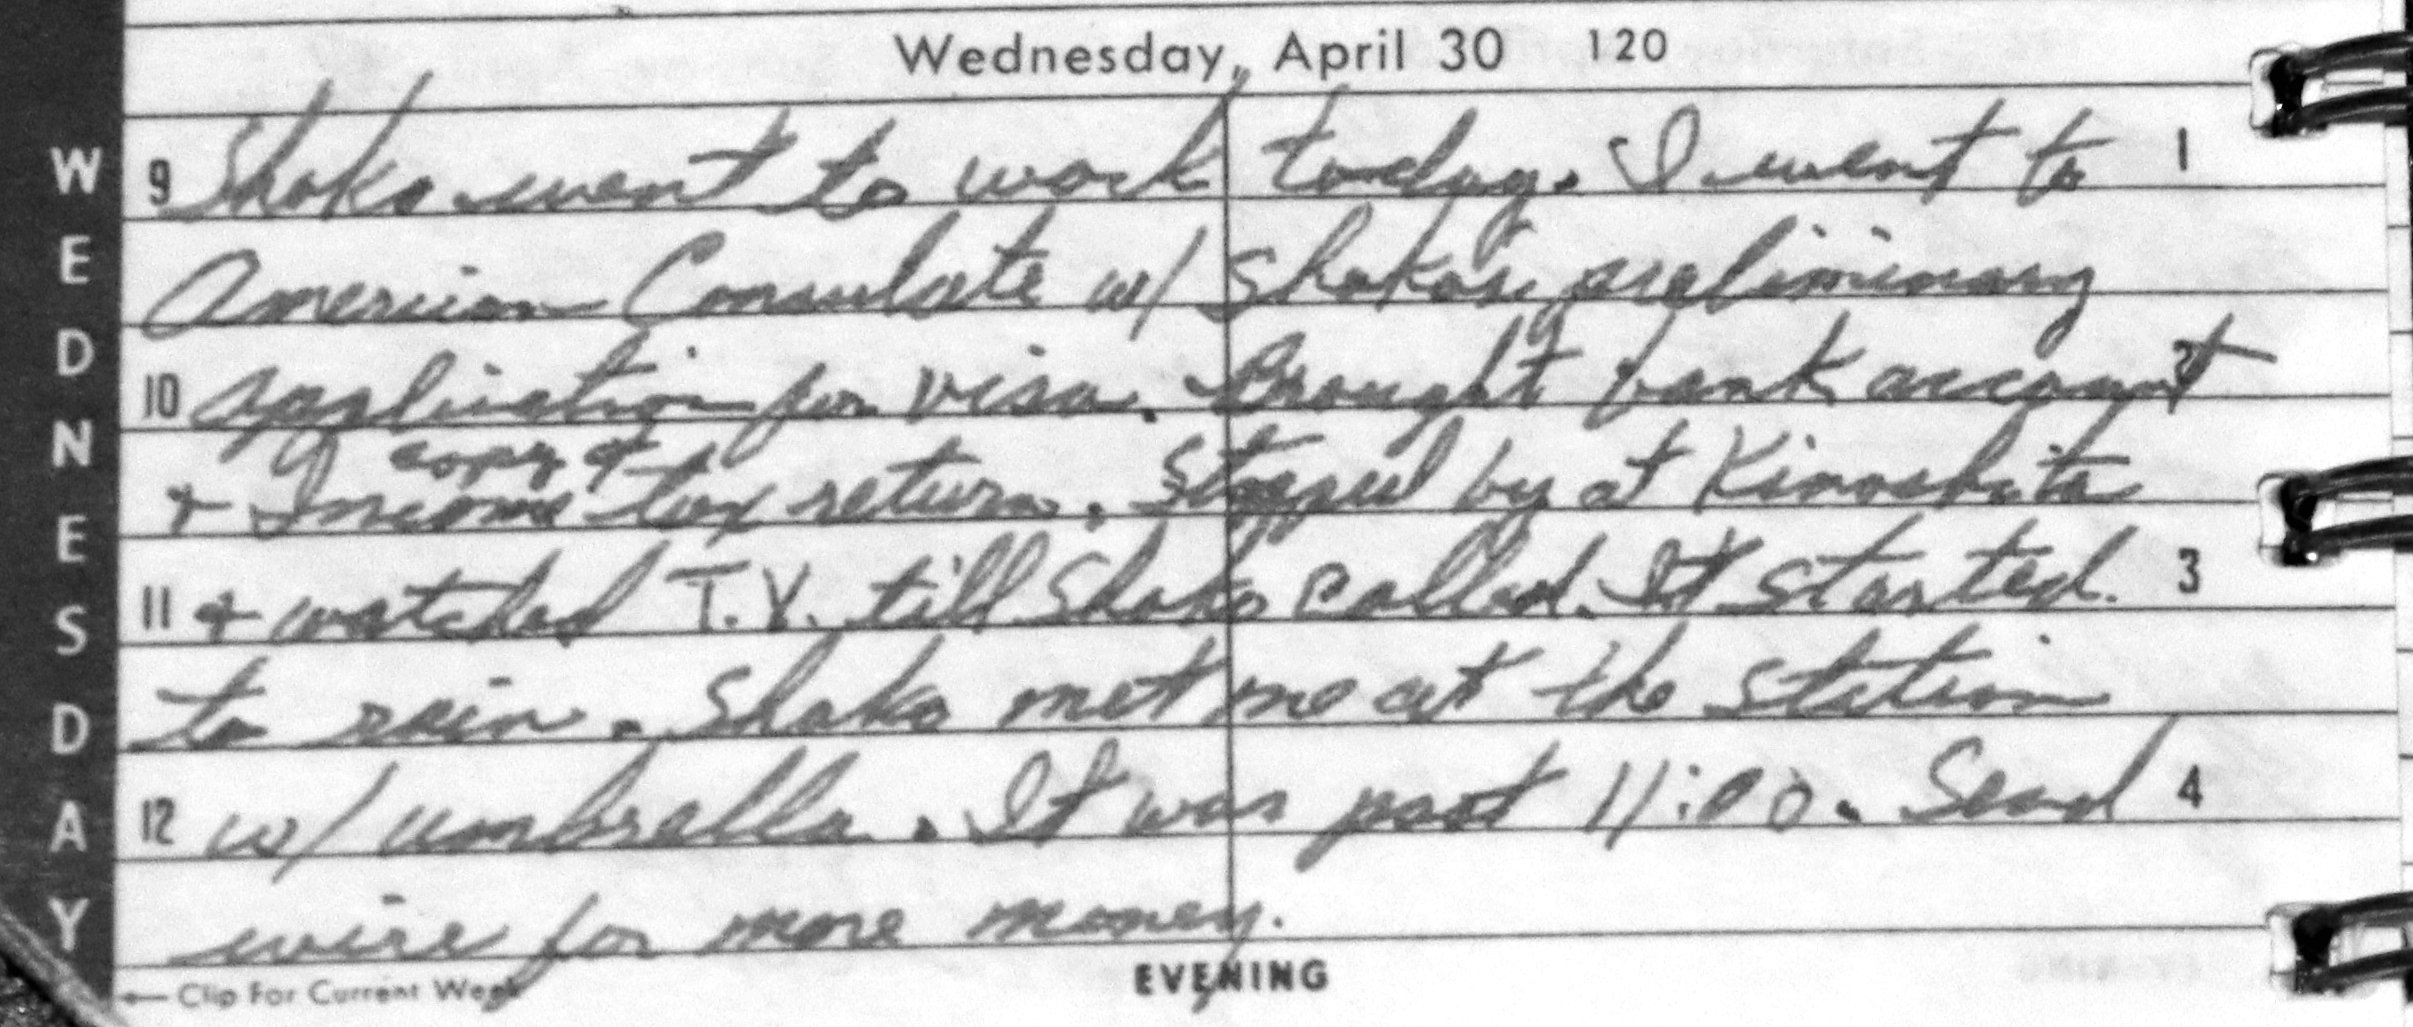 Wednesday, April 30 120
WEDNESDAY
9 Shoko went to work today. I went to 1
American Consulate w/ Shoko's preliminary
10 application for visa. Brought bank account 2
copy of
+ Income tax return. Stopped by at Kinoshita
11 + watched T.V. till Shoko called. It started 3
to rain. Shoko met me at the station
12 w/ umbrella. It was past 11:00. Send 4
wire for more money.
← Clip For Current Week
EVENING